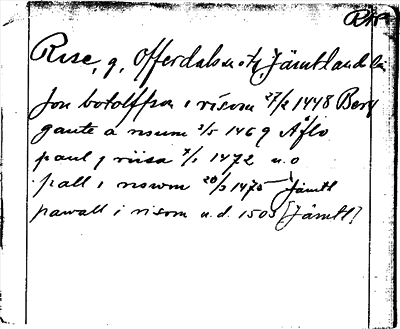 Rise
Rise, g, Offerdals sn o tg, Jämtlands län
Jon botolffson i risom 27/2 1448 Berg
gaute a risum 2/5 1469 Aflo
paul j riisa 7/1 1472 u.o
pall i risom 20/3 1475 Jämtl
pawall i risom u.d. 1503 [Jämtl]